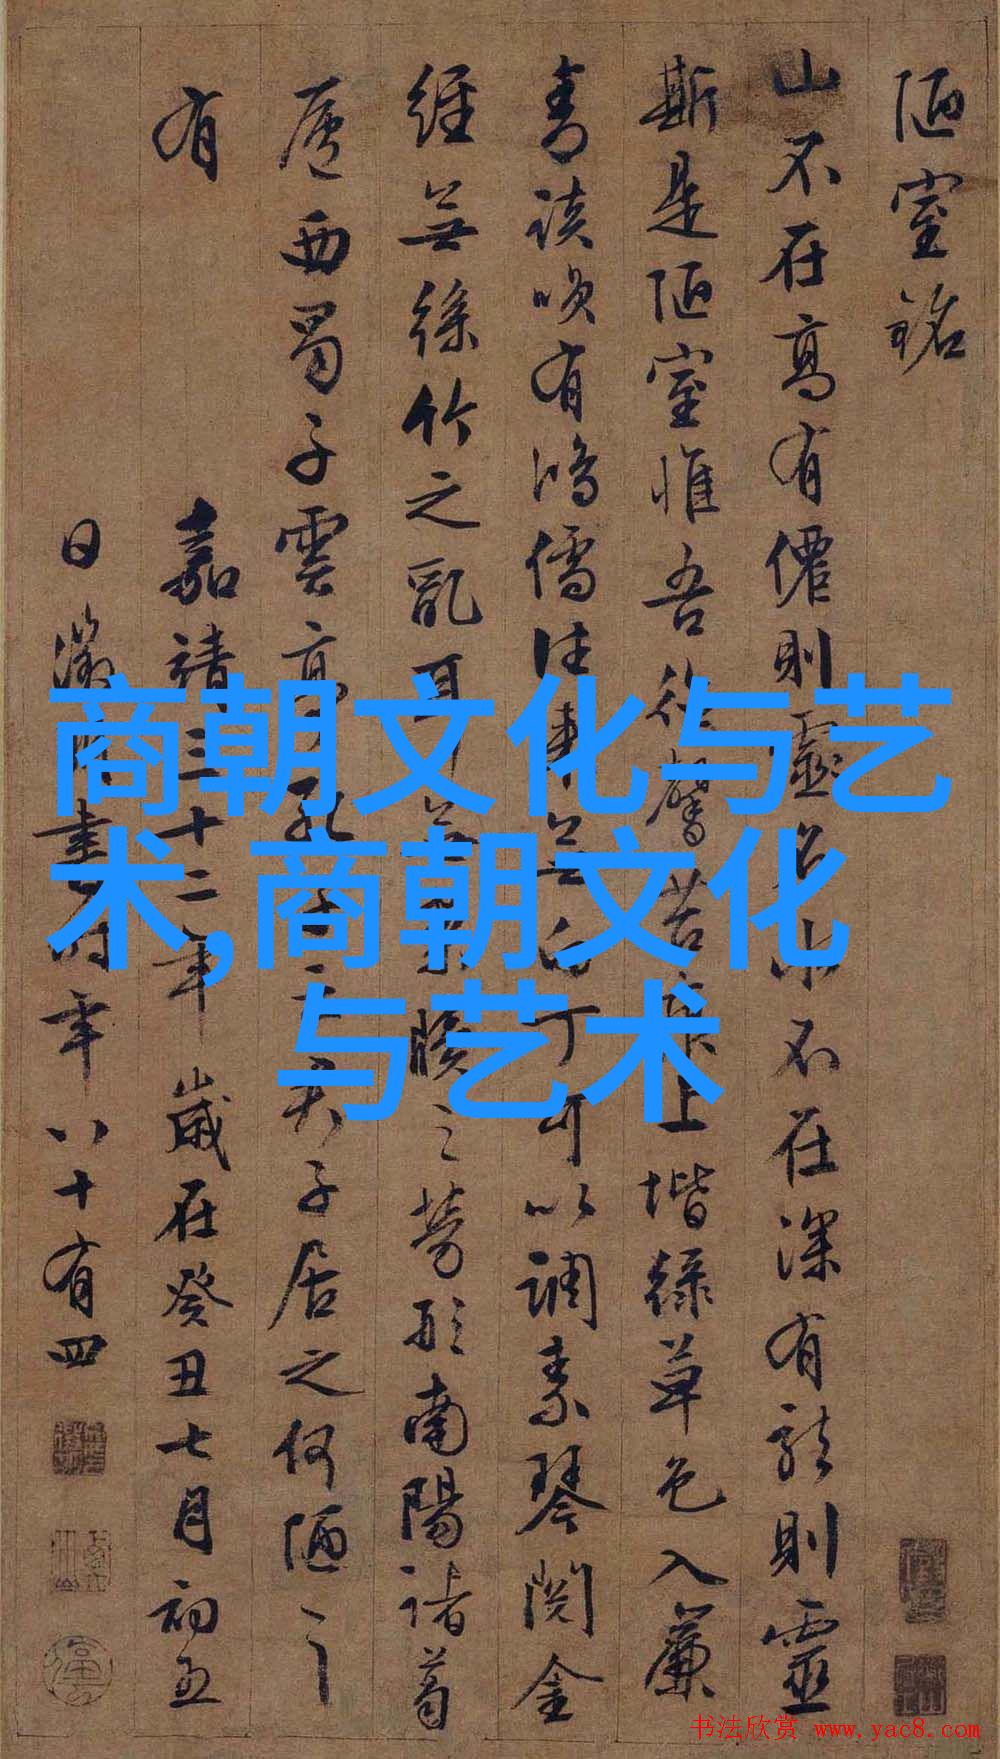 陋室銘
山不在高有僊則靈名水不在深有龍則靈
斯是陋室惟吾德馨苔痕上堦綠草色入簾
青談咲有鴻儒往來無白丁可以調素琴閱金
經無絲竹之亂耳無案牘之勞形南陽諸葛
廬西蜀子雲亭孔子云君子居之何陋之
有
嘉靖三十二年歲在癸丑七月初五
日徵明書時年八十有四
商朝文化与艺
术,商朝文化
与艺术
书法欣赏 www.yac8.com